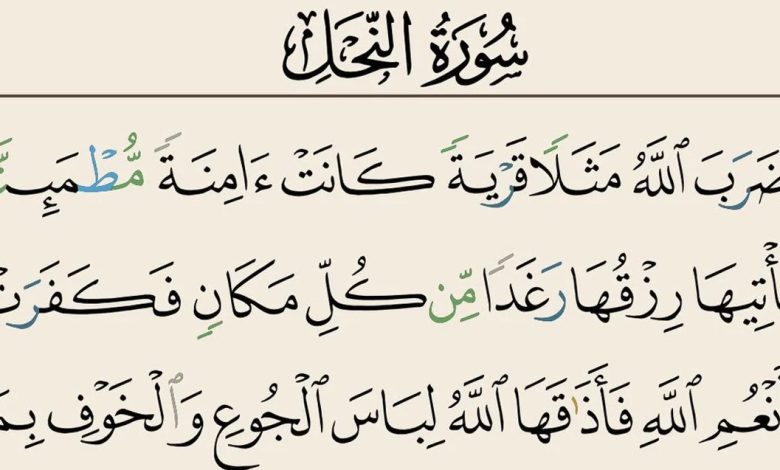 سُورَةُ النَّحْلِ
ضَرَبَ ٱللَّهُ مَثَلًا قَرْيَةً كَانَتْ ءَامِنَةً مُّطْمَئِنَّ
أْتِيهَا رِزْقُهَا رَغَدًا مِّن كُلِّ مَكَانٍ فَكَفَرَتْ
نْعُمِ ٱللَّهِ فَأَذَٰقَهَا ٱللَّهُ لِبَاسَ ٱلْجُوعِ وَٱلْخَوْفِ بِمَ